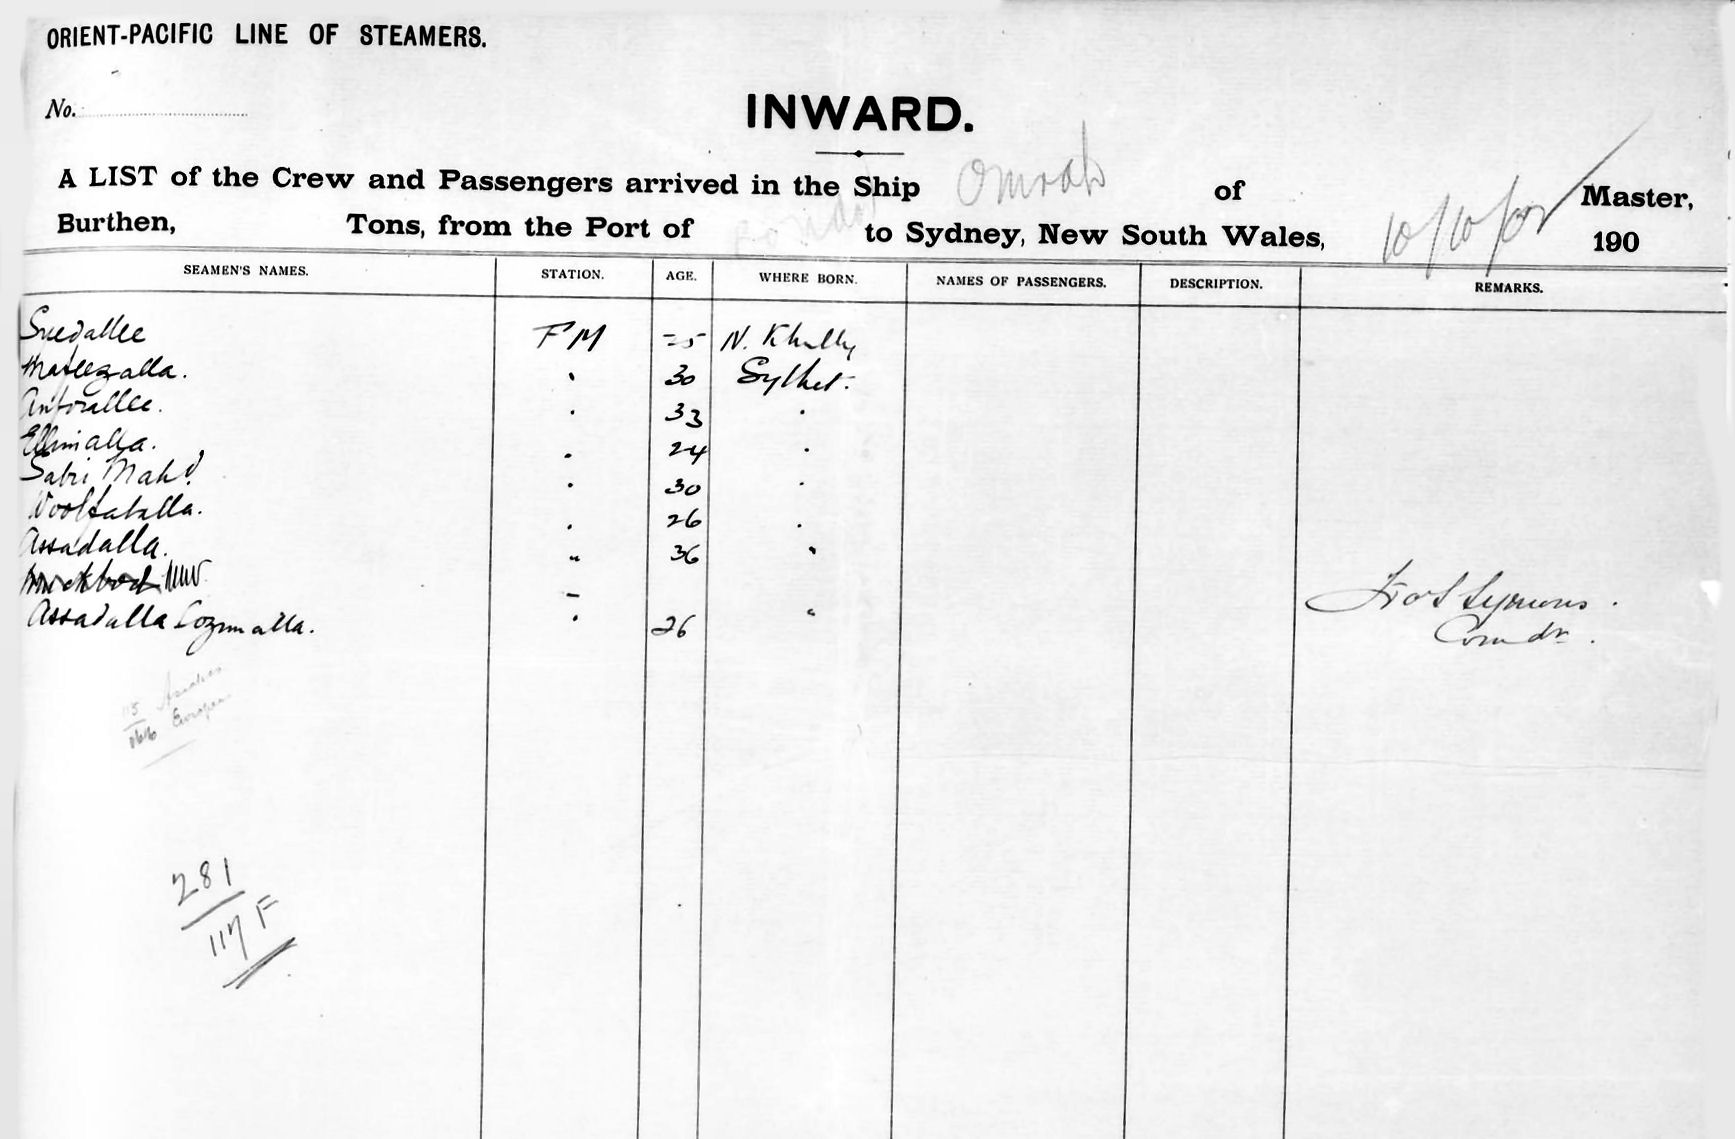 ORIENT-PACIFIC LINE OF STEAMERS.
No.
INWARD.
A LIST of the Crew and Passengers arrived in the Ship Omrah of Master,
Burthen, Tons, from the Port of London to Sydney, New South Wales, 10/10/02 190
SEAMEN'S NAMES. STATION. AGE. WHERE BORN. NAMES OF PASSENGERS. DESCRIPTION. REMARKS.
FM 25 N. Khally
30 Sylhet.
33
24
Sabri Mahd. 30
26
Assadalla. " 36 "
Assadalla Cozumalla. 26 "
Symons.
Comdr.
115 Asiatics
166 European
281
117 F